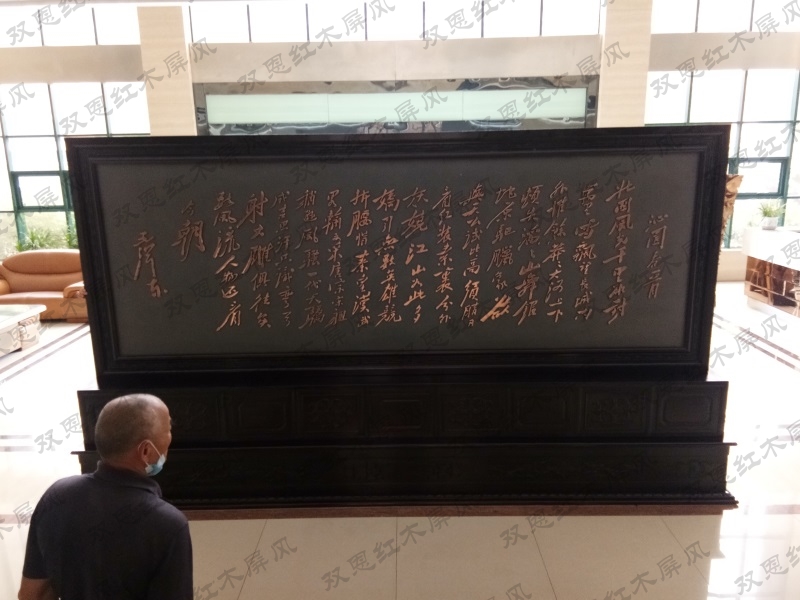 沁园春雪
北国风光千里冰封
万里雪飘望长城内
外惟余莽莽大河上下
顿失滔滔山舞银
蛇原驰腊象欲
与天公试比高须晴日
看红装素裹分外
妖娆江山如此多
娇引无数英雄竞
折腰惜秦皇汉武
略输文采唐宗宋祖
稍逊风骚一代天骄
成吉思汗只识弯弓
射大雕俱往矣
数风流人物还看
今朝
毛泽东
双恩红木屏风